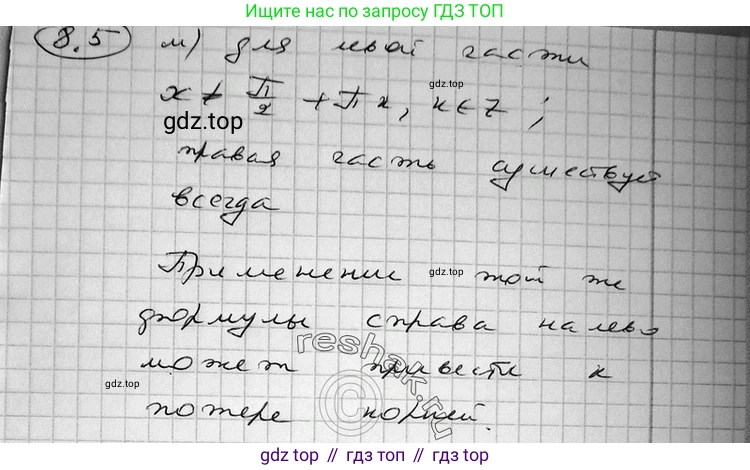 Ищите нас по запросу ГДЗ ТОП
8.5 м) для левой части
gdz.top
x ≠ П/2 + Пк, к ∈ Z ;
gdz.top
правая часть существует
всегда
Применение той же
gdz.top
формулы справа налево
reshak.ru
может привести к
gdz.top
потере корней.
©
gdz.top // гдз.топ // gdz.top // гдз.топ